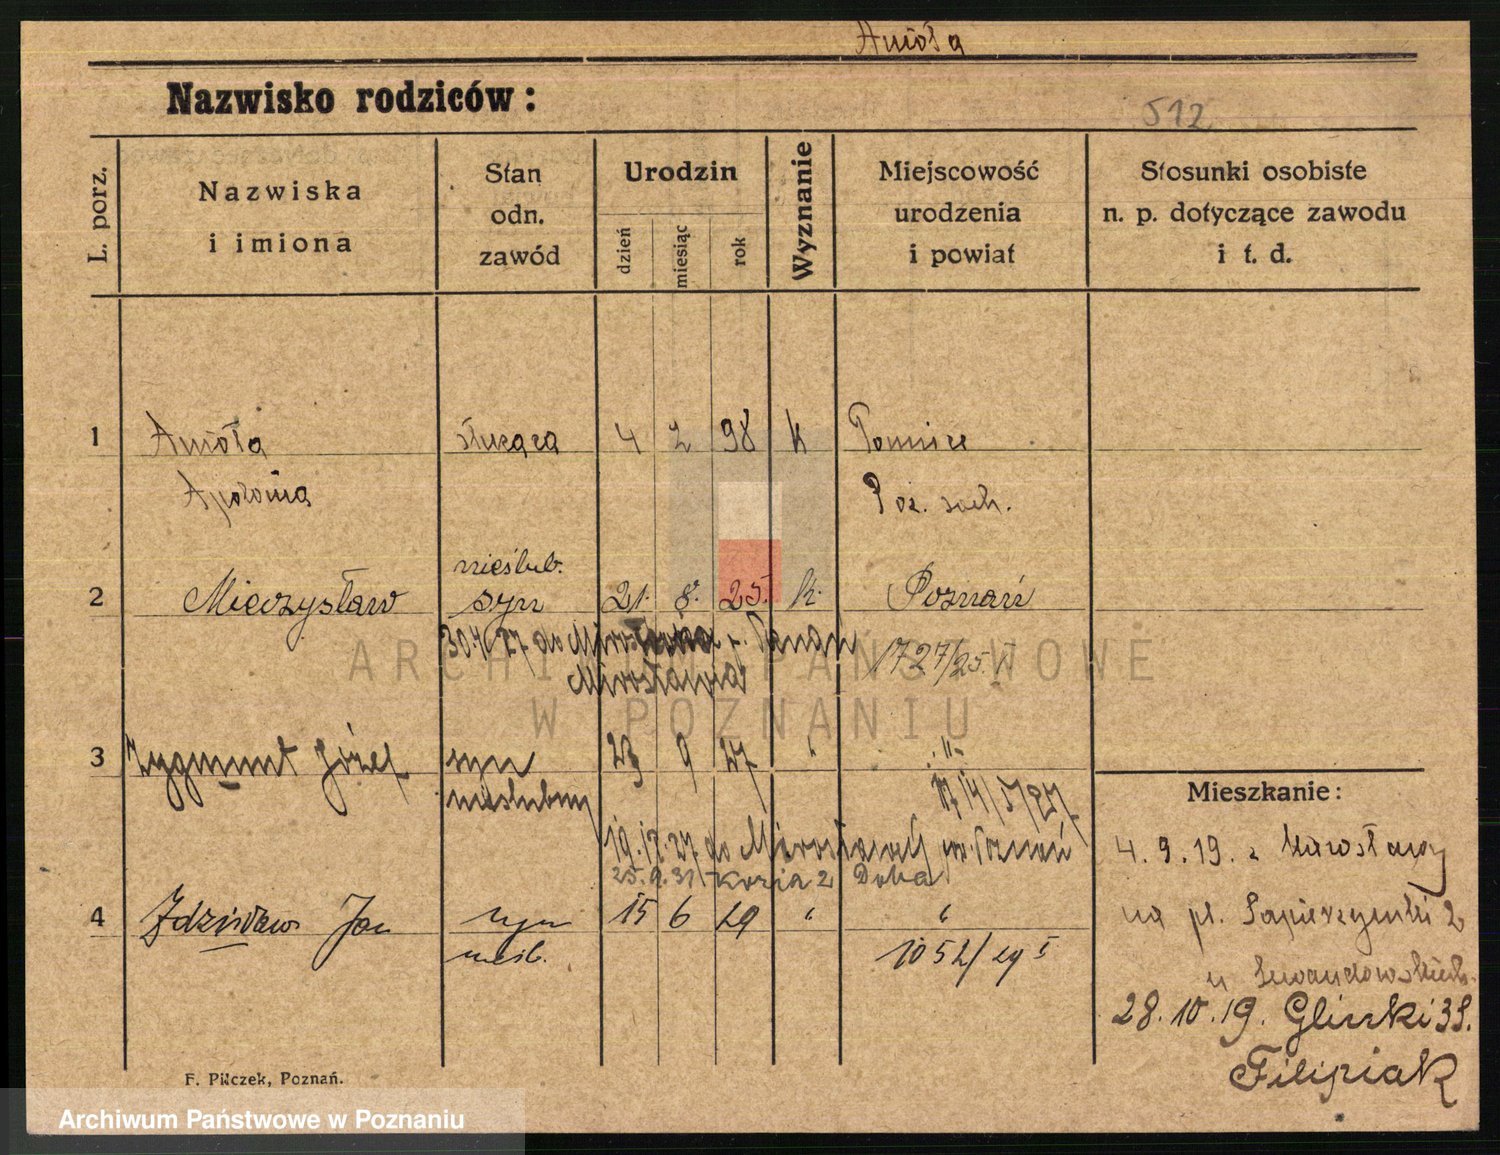 Anioła
Nazwisko rodziców:
512
L. porz.
Nazwiska
i imiona
Stan
odn.
zawód
Urodzin
dzień
miesiąc
rok
Wyznanie
Miejscowość
urodzenia
i powiat
Stosunki osobiste
n. p. dotyczące zawodu
i t. d.
1 Anioła służąca 4 2 98 k
Apolonja Poz. zach.
nieślub.
2 Mieczysław syn 21. 8. 25. k. Poznań
30.4.27 do p. Poznań 1727/25.
3 Zygmunt Józef syn 23 9 27 " -"-
nieślubny
Mieszkanie:
19.12.27 do pow. Poznań
4.9.19. z
25.9.31 Kozia 2 Doba
4 Zdzisław Jan syn 15 6 29 " "
na pl. Sapieżyński 2
nieśl. 1052/29 I
u Lewandowskich.
28.10.19. Glinki 38.
Filipiak
F. Pilczek, Poznań.
ARCHIWUM PAŃSTWOWE
W POZNANIU
Archiwum Państwowe w Poznaniu